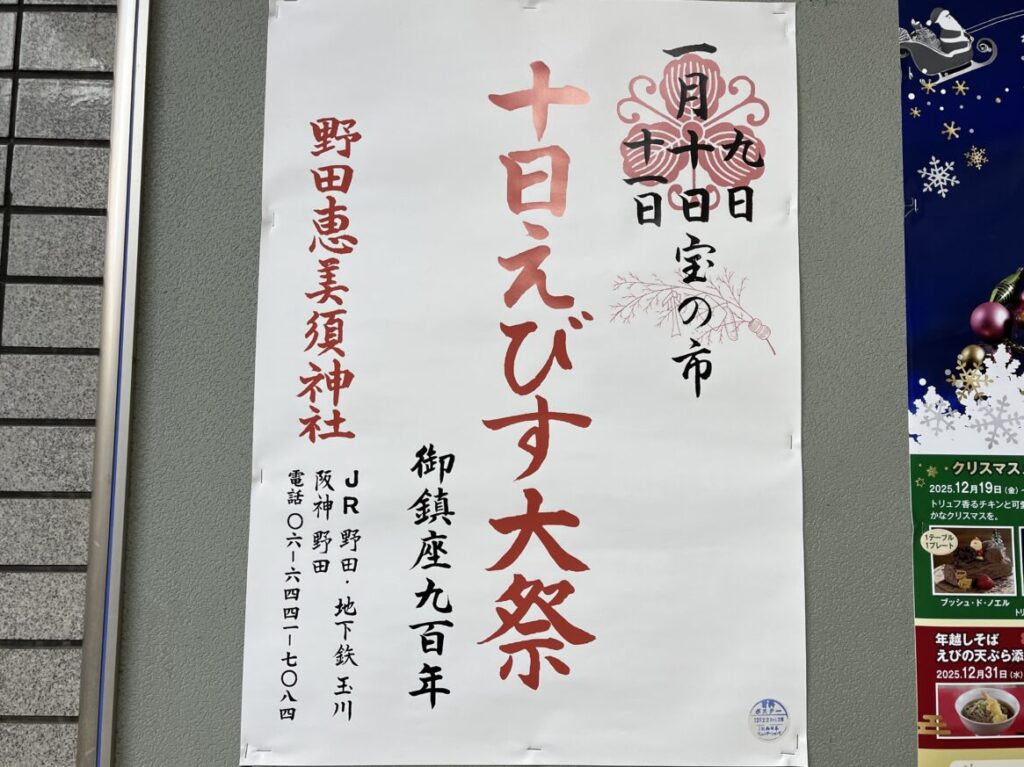 一月
九日
十日
十一日
宝の市
十日えびす大祭
御鎮座九百年
野田恵美須神社
JR 野田・地下鉄 玉川
阪神 野田
電話 〇六－六四四一－七〇八四
ポスター
クリスマス
2025.12月19日(金)
トリュフ香るチキンと可
かなクリスマスを。
1テーブル
1プレート
ブッシュ・ド・ノエル
年越しそば
えびの天ぷら添
2025.12月31日(水)